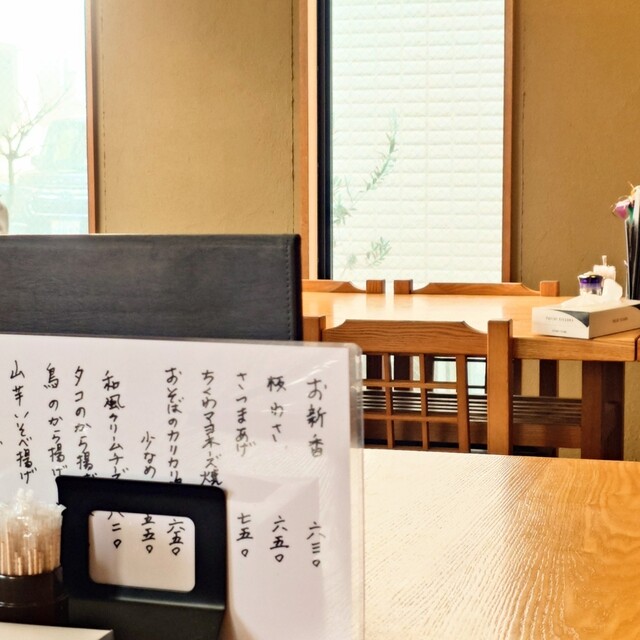 お新香 六三〇
板わさ 六五〇
さつまあげ 七五〇
ちくわ
おそばのカリカリ 六五〇
少なめ 五五〇
和風クリームチーズ 八二〇
タコのから揚げ
鳥のから揚げ
山芋いそべ揚げ